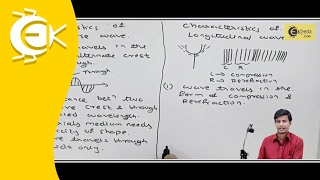 istics of
e wave.
travels in the
alternate crest
ough.
trough
tance betn two
ve Crest & through
lled wavelength.
medium needs
city of shape.
travels through
ds only.
Characteristics of
Longitudinal wave
C R
C → Compression
R → Rarefraction
(1) Wave travels in the
form of compression &
Rarefraction.